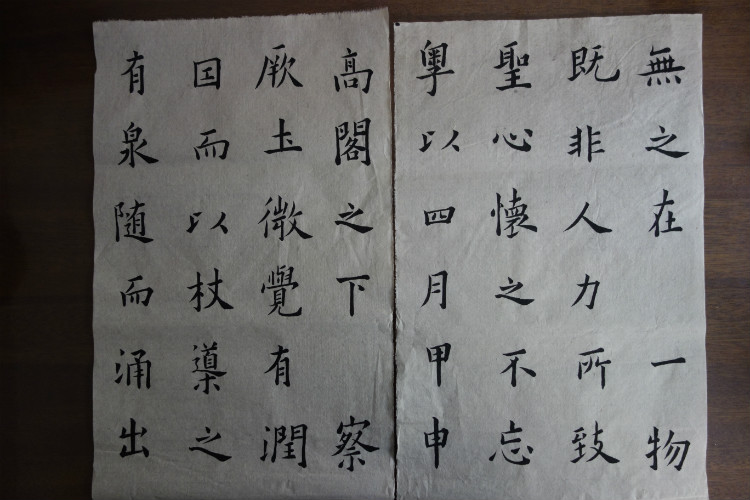 無之在一物
既非人力所致
聖心懷之不忘
粤以四月甲申
高閣之下察
厥圡微覺有潤
囙而以杖導之
有泉随而涌出